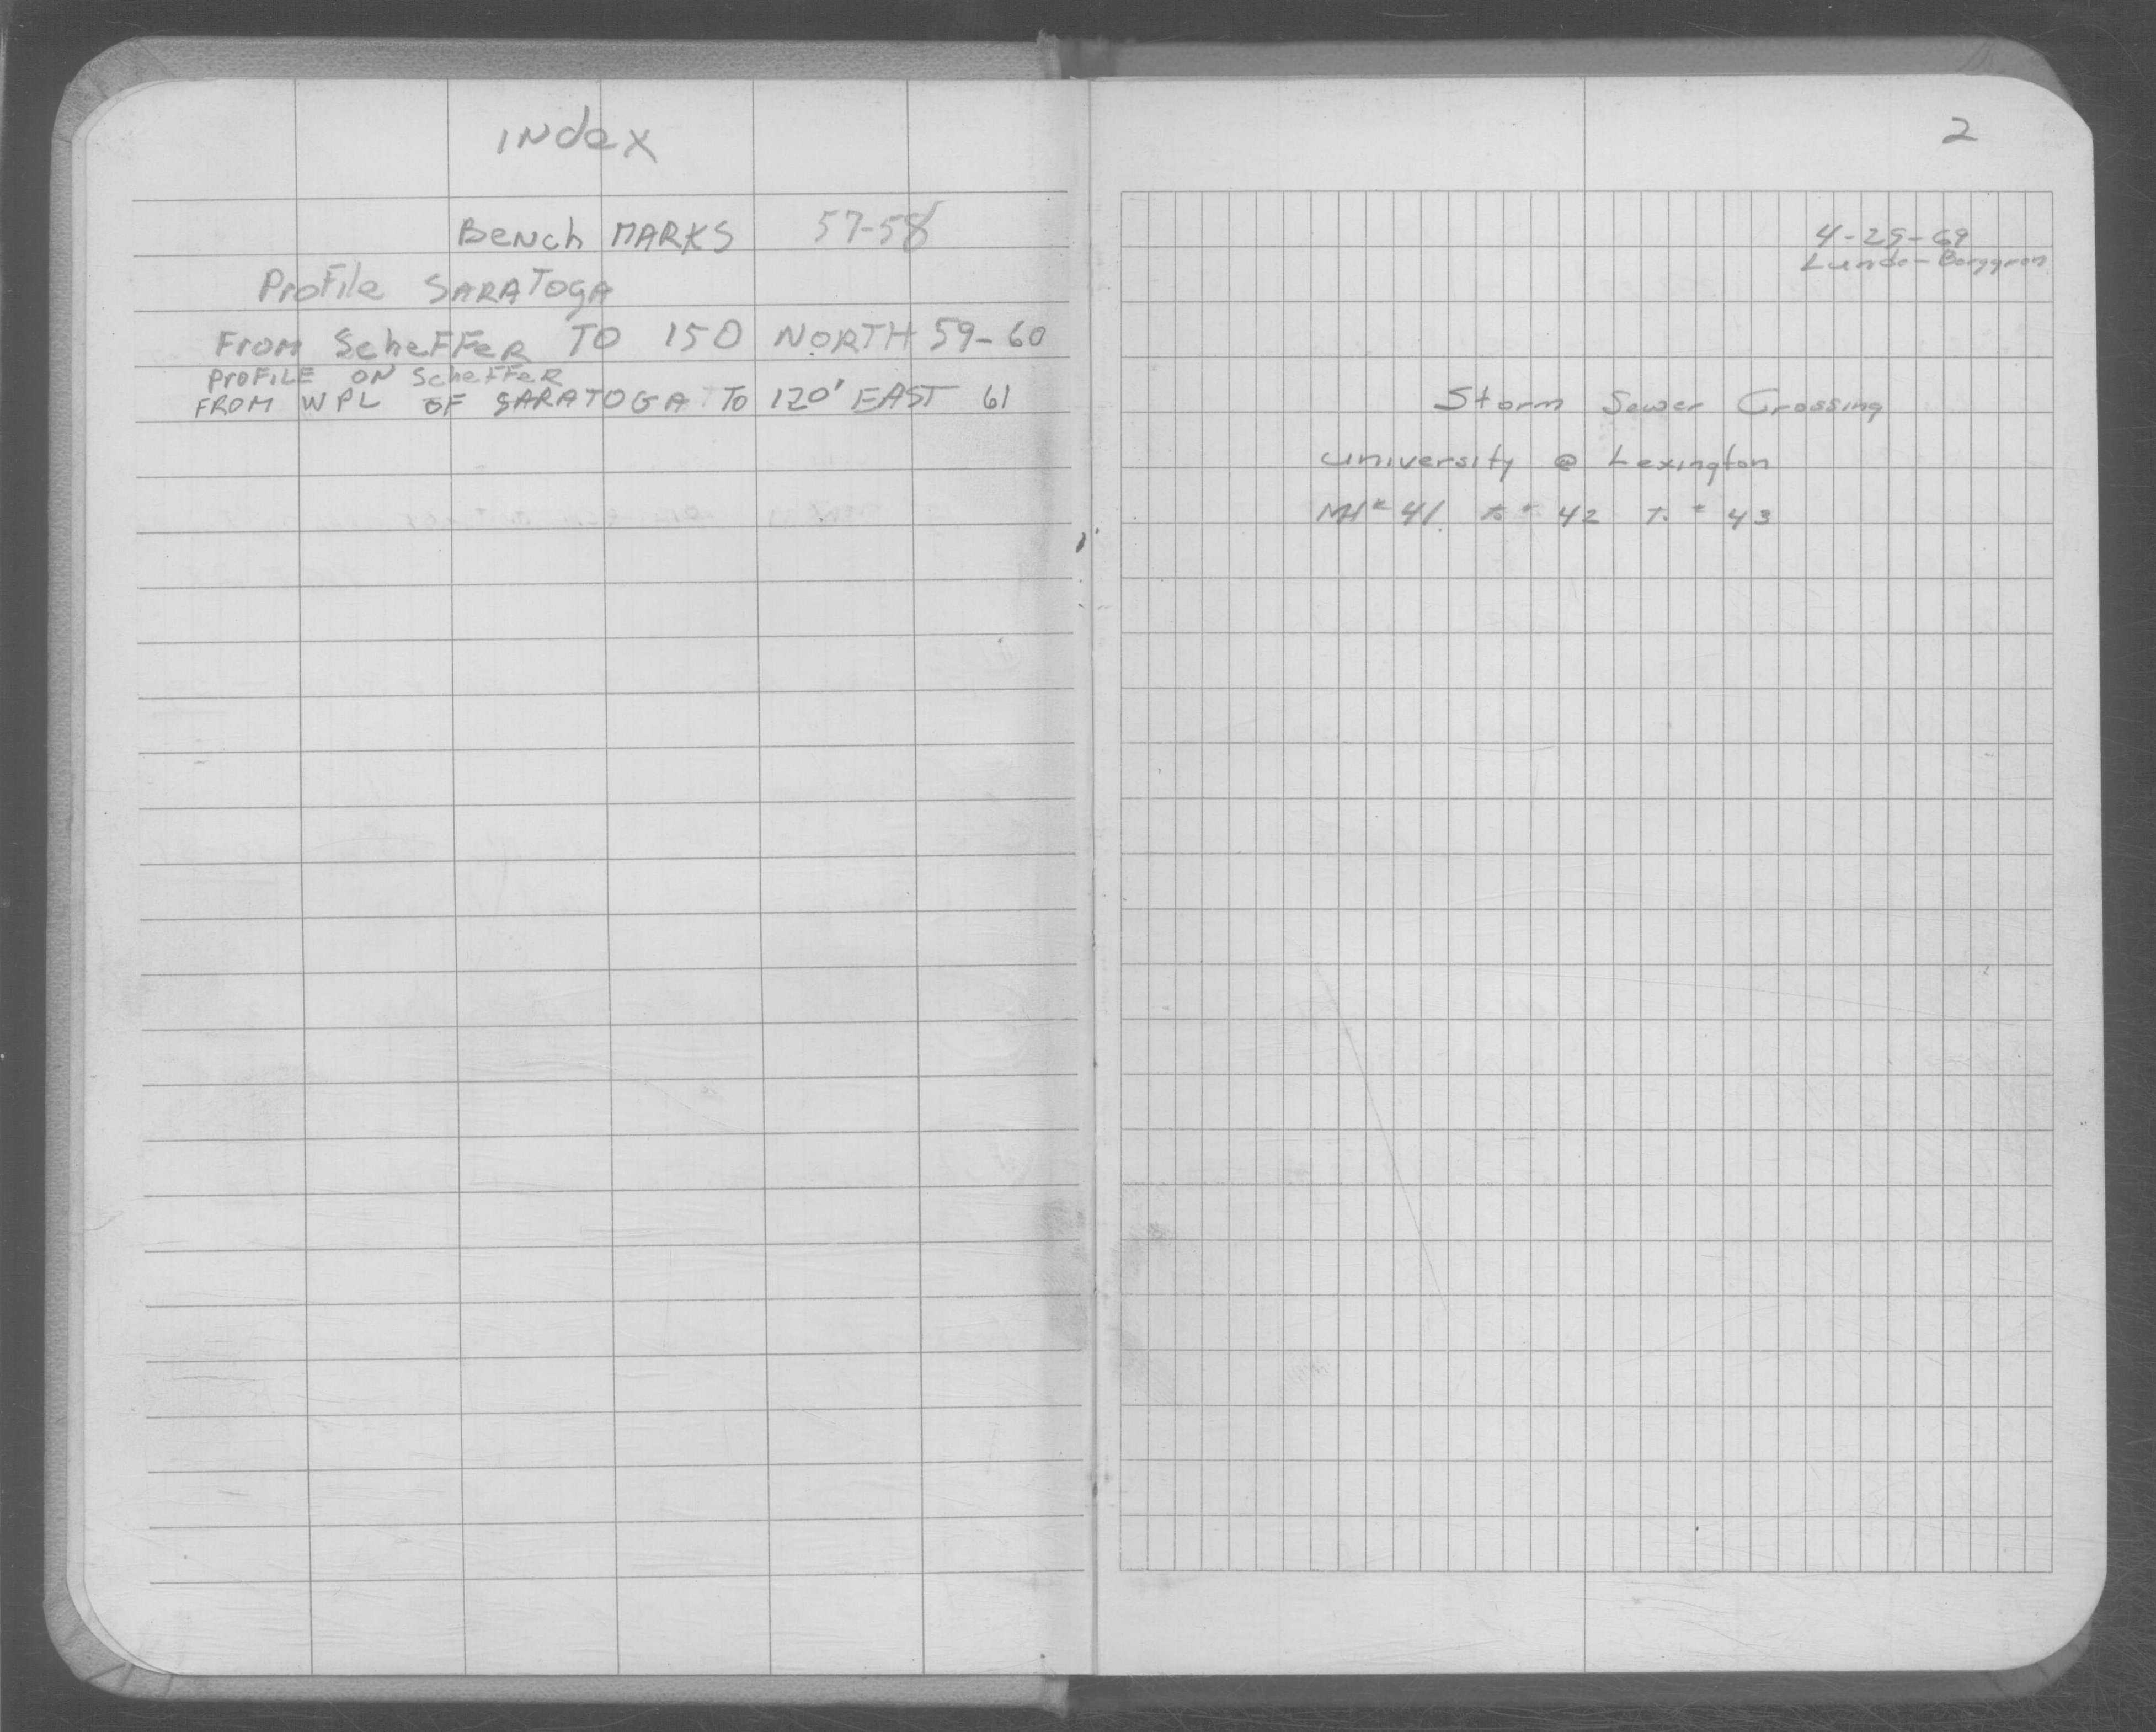 INdex
BeNch MARKS 57-58
ProFile SARATOGA
From ScheFFeR TO 150 NORTH 59-60
PROFILE ON ScheFFeR
FROM W PL OF SARATOGA TO 120' EAST 61
2
4-29-69
Storm Sewer Crossing
University @ Lexington
MH# 41 to # 42 To # 43